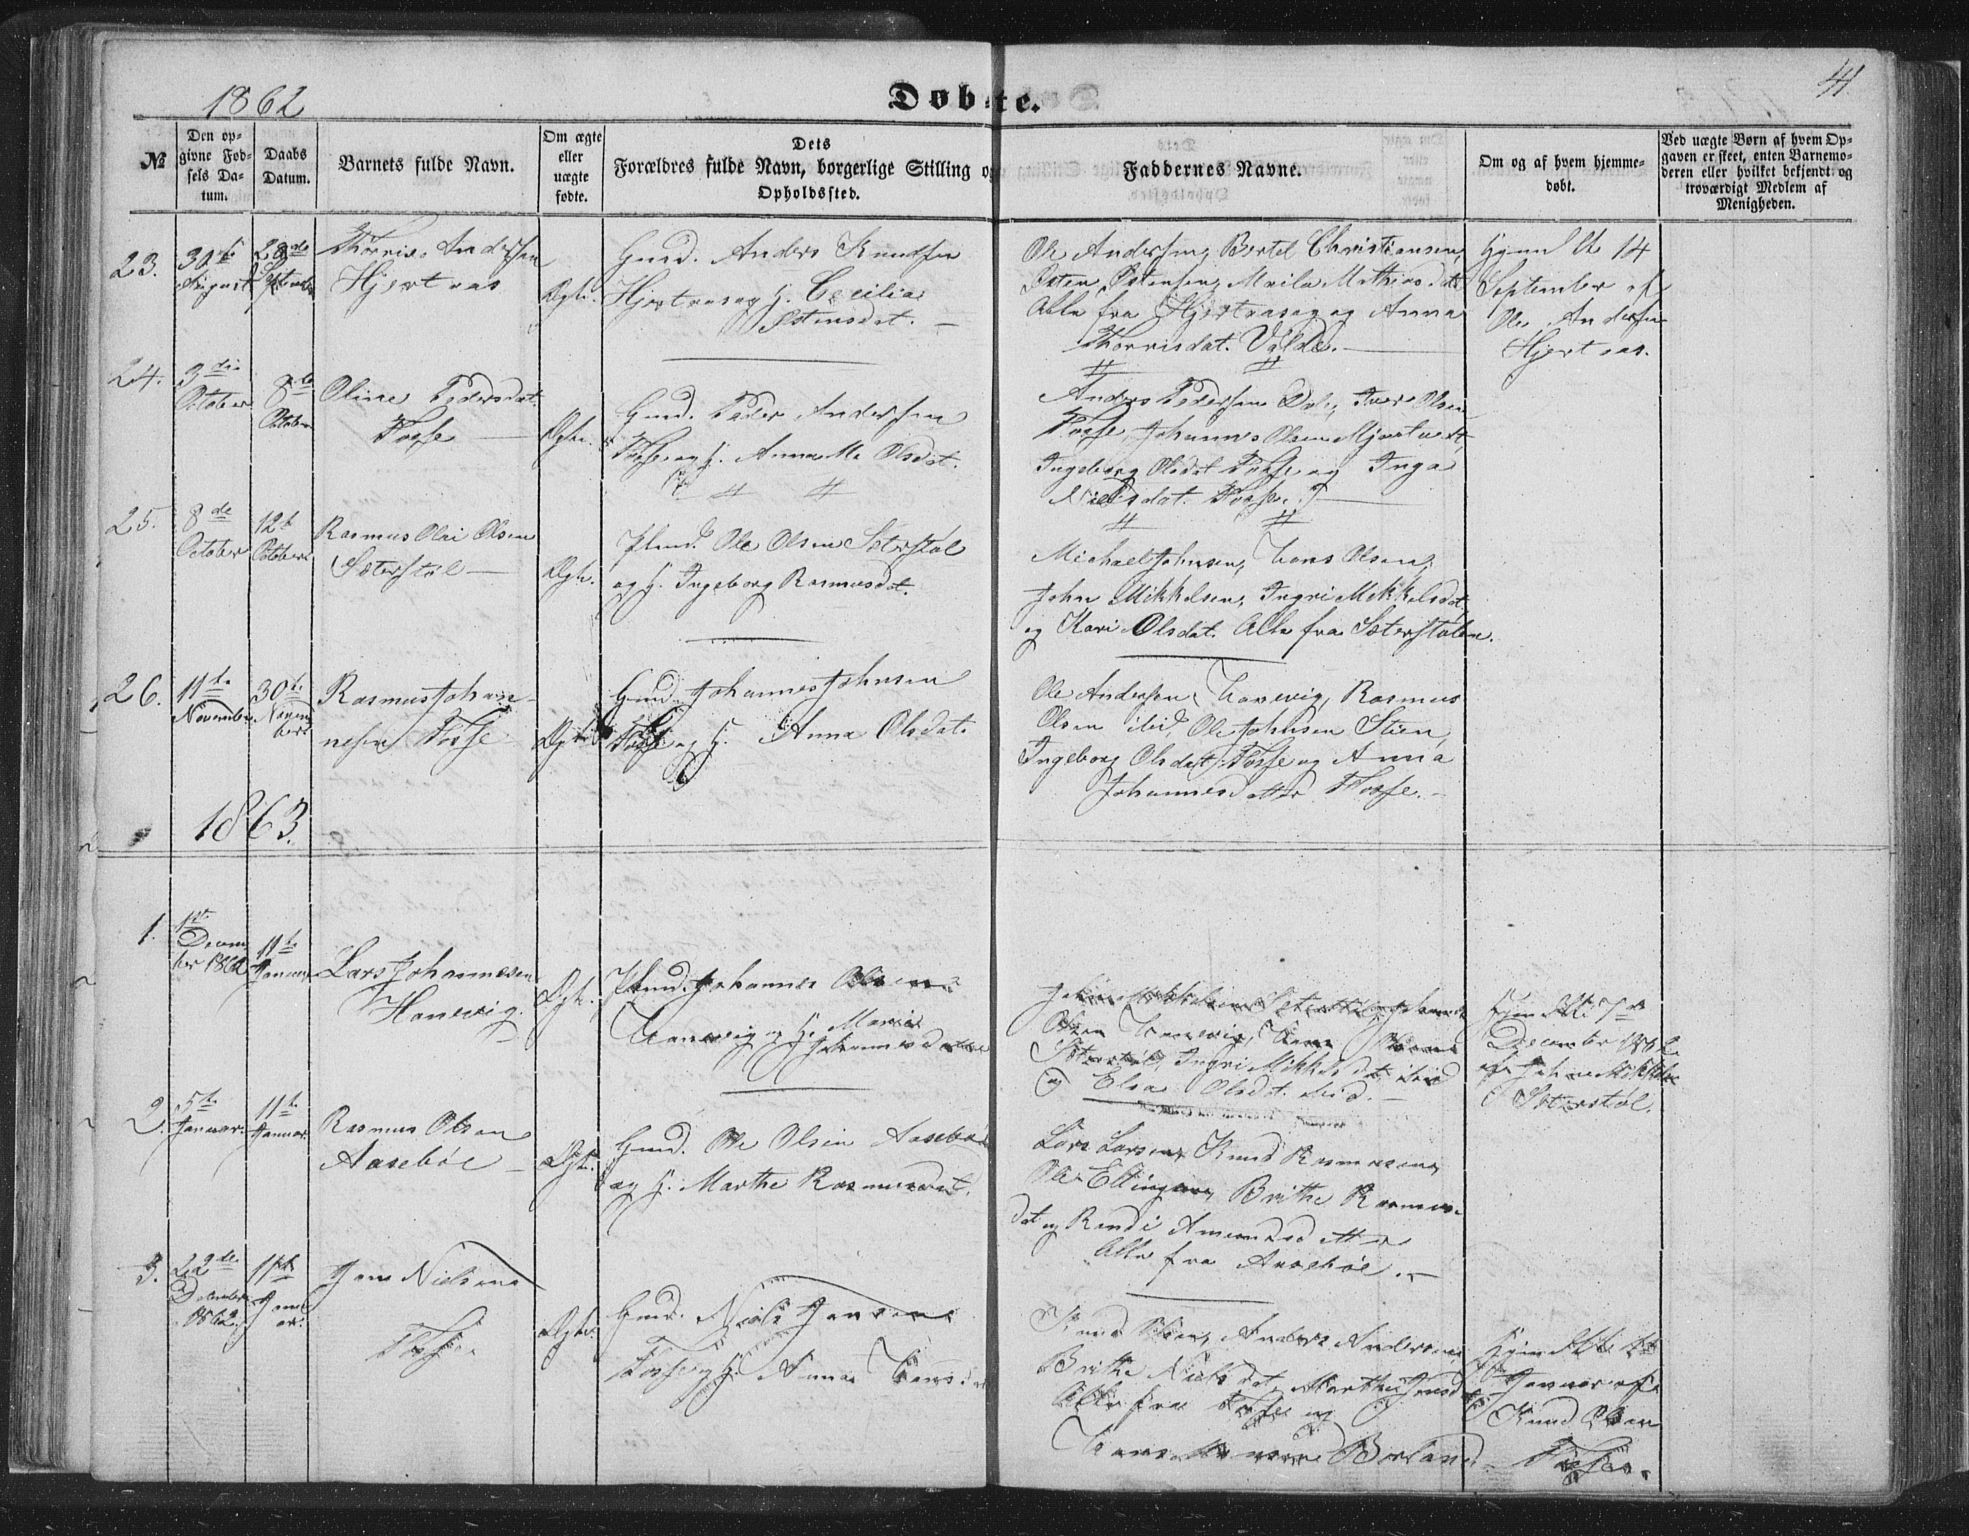 1862
Døbte.
41
№
Den op-
givne Fød-
sels Da-
tum.
Daabs
Datum.
Barnets fulde Navn.
Om ægte
eller
uægte
fødte.
Dets
Forældres fulde Navn, borgerlige Stilling og
Opholdssted.
Faddernes Navne.
Om og af hvem hjemme-
døbt.
Ved uægte Børn af hvem Op-
gaven er skeet, enten Barnemo-
deren eller hvilket bekjendt og
troværdigt Medlem af
Menigheden.
23.
30te
August
28de
September
Thorris Andersen
Hjertaas
Ægte.
Gmd. Anders Knudsen
Hjertaas og H. Cecilia
Østensdat.
Ole Andersen, Bertel Christiansen,
Østen Østensen, Marla Mathiasdat
Alle fra Hjertaas og Anna
Thorrisdat. Valde.
Hjemdbt 14
September af
Ole Andersen
Hjertaas.
24.
3die
October
8de
October
Oline Pedersdat.
Fosse
Ægte.
Gmd. Peder Andersen
Fosse og H. Anna Ma Olsdat.
Anders Pedersen Dale, Iver Olsen
Fosse, Johannes Olsen Mjøstvedt,
Ingeborg Olsdat Fosse og Inga
Nielsdat. Fosse.
25.
8de
October
12te
October
Rasmus Olai Olsen
Sæterstøl
Ægte.
Plmd. Ole Olsen Sæterstøl
og H. Ingeborg Rasmusdat.
Michael Johnsen, Hans Olsen,
John Mikkelsen, Ingri Mikkelsdat
og Kari Olsdat. Alle fra Sæterstølen.
26.
11te
November
30te
Novem
ber
Rasmus Johan-
nesen Fosse
Ægte
Gmd. Johannes Johnsen
Fosse og H. Anna Olsdat.
Ole Andersen, Hanevig, Rasmus
Olsen ibid, Ole Johnsen Stien,
Ingeborg Olsdat, Fosse og Anna
Johannesdatter Fosse.
1863.
1.
1ste
Decem
ber 1862
11te
Januar
Lars Johannesen
Hanevig.
Ægte.
Plmd. Johannes Olsen
Hanevig og H. Maria
Johannesdatter
John Mikkelsen Sæterstøl, Johannes
Olsen Hanevig, Hans Olsen
Sæterstøl, Ingri Mikkelsdat, ibid
og Elsa Olsdat. ibid.
Hjemdbt 7de
December 1862
af John Mikkelsen
Sæterstøl.
2.
5te
Januar.
11te
Januar.
Rasmus Olsen
Aasebøe
Ægte.
Gmd. Ole Olsen Aasebøe
og H. Marthe Rasmusdat.
Lars Larsen, Knud Rasmussen,
Ole Ellingsen, Brithe Rasmus-
dat og Randi Amundsdatter
Alle fra Aasebøe.
3.
22de
December
1862.
11te
Janu
ar.
Jens Nielsen
Fosse.
Ægte.
Gmd. Niels Jensen
Fosse og H. Anna Hansdat
Knud Olsen, Anders Andersen,
Brithe Nielsdat, Marthe Jensdat
Alle fra Fosse og
Hans Hansen Børland
Hjemdbt 1te
Januar af
Knud Olsen
Fosse.